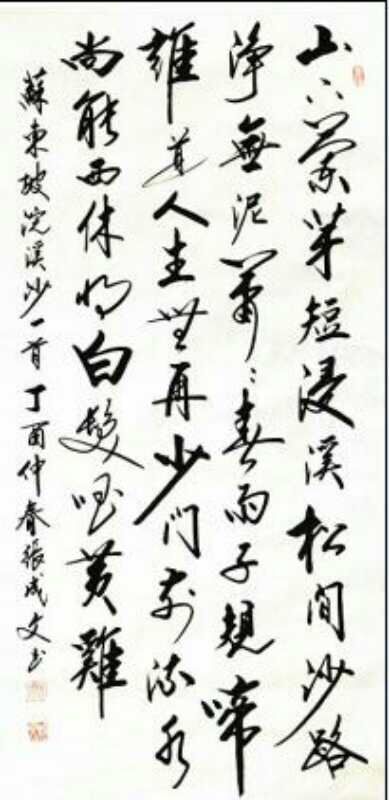 山下蘭芽短浸溪松間沙路
淨無泥蕭〻春雨子規啼
誰道人生無再少門前流水
尚能西休將白髮唱黃雞
蘇東坡浣溪沙一首丁酉仲春張成文書